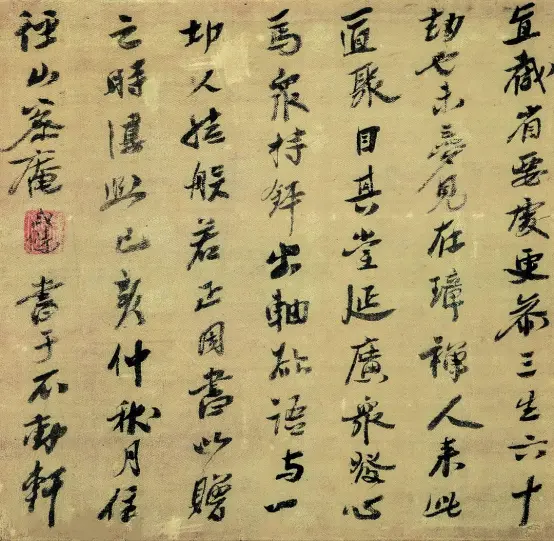 直截省要處更參三生六十
劫也未夢見在璋禪人來此
道聚日其堂延廣衆發心
為衆持鉢出軸欲語与一
切人結般若正因書以贈
之時淳熙己亥仲秋月住
徑山密庵 書于不動軒